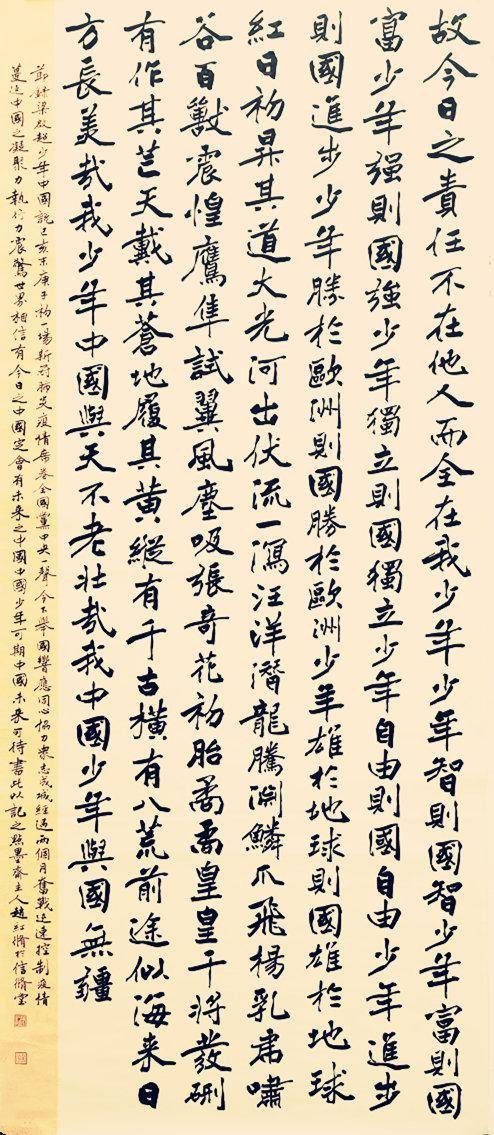 故今日之責任不在他人而全在我少年少年智則國智少年富則國
富少年强則國強少年獨立則國獨立少年自由則國自由少年進步
則國進步少年勝於歐洲則國勝於歐洲少年雄於地球則國雄於地球
紅日初昇其道大光河出伏流一瀉汪洋潛龍騰淵鱗爪飛楊乳虎嘯
谷百獸震惶鷹隼試翼風塵吸張奇花初胎矞矞皇皇干將發硎
有作其芒天戴其蒼地履其黃縱有千古橫有八荒前途似海来日
方長美哉我少年中國與天不老壯哉我中國少年與國無疆
節錄梁啟超少年中國說己亥末庚子初一場新冠肺炎疫情席卷全國黨中央一聲令下舉國響應同心協力衆志成城經過兩個月奮戰迅速控制疫情
蔓延中國之凝聚力執行力震驚世界相信有今日之中國定會有未来之中國中國少年可期中國未来可待書此以記之 齋主人趙紅 於信 堂